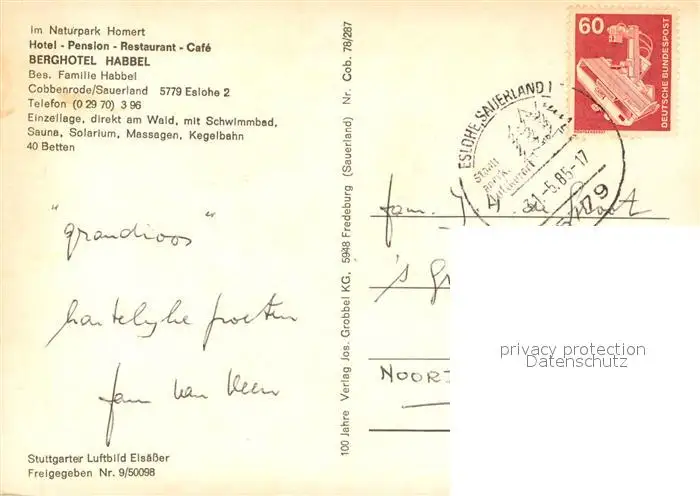 im Naturpark Homert
Hotel - Pension - Restaurant - Café
BERGHOTEL HABBEL
Bes. Familie Habbel
Cobbenrode/Sauerland 5779 Eslohe 2
Telefon (0 29 70) 3 96
Einzellage, direkt am Wald, mit Schwimmbad,
Sauna, Solarium, Massagen, Kegelbahn
40 Betten
"grandioos"
hartelyke groeten
fam van Veen
Stuttgarter Luftbild Elsäßer
Freigegeben Nr. 9/50098
100 Jahre Verlag Jos. Grobbel KG, 5948 Fredeburg (Sauerland) Nr. Cob. 78/287
60
DEUTSCHE BUNDESPOST
ESLOHE, SAUERLAND 1
Staatl.
anerk.
Luftkurort
31.-5.85-17
fam.
's Gr
NOOR
privacy protection
Datenschutz